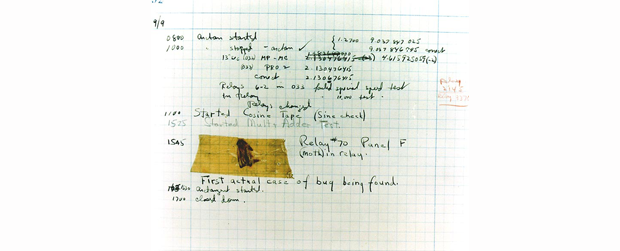 9/9
0800 antan started
1000 " stopped - antan ✓
{ 1.2700 9.037 847 025
9.037 846 795 correct
13"uc (032) MP-MC 4.615925059(-2)
(033) PRO 2 2.130476415
correct 2.130676415
Relays 6-2 in 033 failed special speed test
in relay " 10,000 test.
Relays changed
1100 Started Cosine Tape (Sine check)
1525 Started Mult+Adder Test.
1545 Relay #70 Panel F
(moth) in relay.
First actual case of bug being found.
antangent started.
1700 closed down.